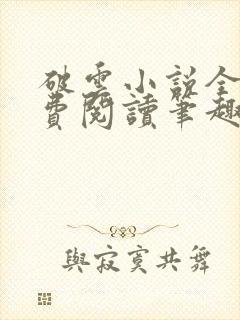 破雲小說全
費閱讀筆趣
與寂寞共舞